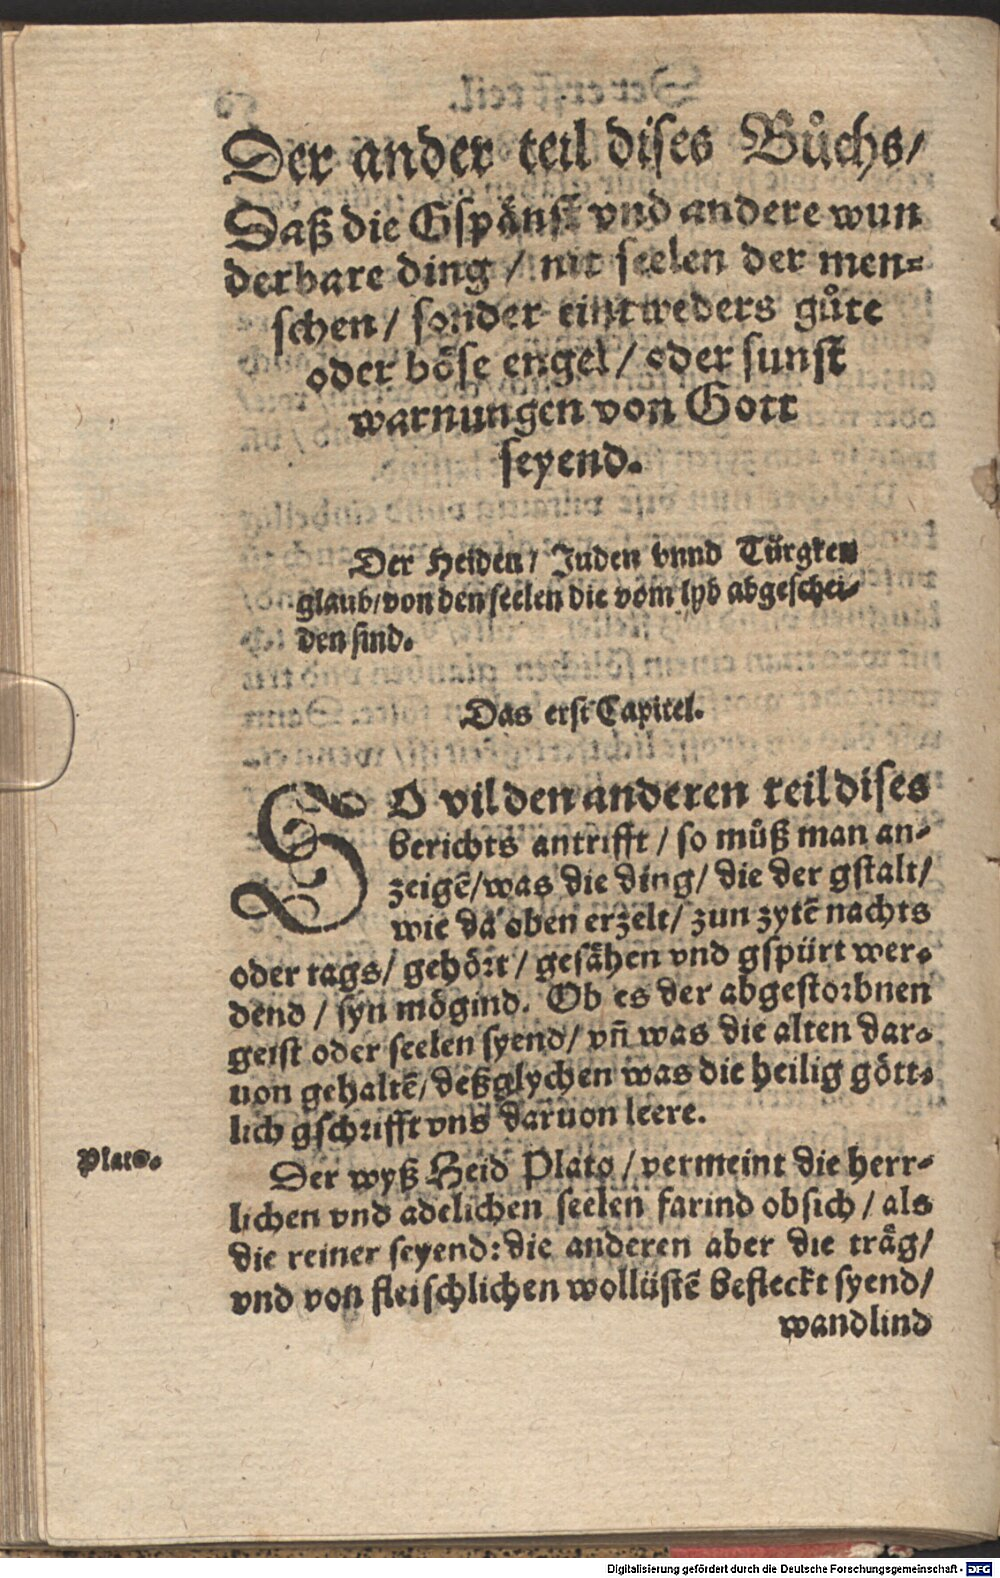 Der ander teil dises Bůchs/
Daß die Gspänst vnd andere wun
derbare ding / nit seelen der men⸗
schen / sonder eintweders gůte
oder böse engel / oder sunst
warnungen von Gott
seyend.
Der Heiden / Juden vnnd Türgken
glaub/von den seelen die vom lyb abgeschei⸗
den sind.
Das erst Capitel.
SO vil den anderen teil dises
berichts antrifft / so můß man an⸗
zeigē/was die ding/ die der gstalt/
wie da oben erzelt/ zun zytē nachts
oder tags/ gehört / gesähen vnd gspürt wer⸗
dend / syn mögind. Ob es der abgestorbnen
geist oder seelen syend/ vñ was die alten dar⸗
uon gehaltē/deßglychen was die heilig gött⸗
lich gschrifft vns daruon leere.
Plato.
Der wyß Heid Plato / vermeint die herr⸗
lichen vnd adelichen seelen farind obsich / als
die reiner seyend: die anderen aber die träg/
vnd von fleischlichen wollüstē befleckt syend/
wandlind
Digitalisierung gefördert durch die Deutsche Forschungsgemeinschaft - DFG